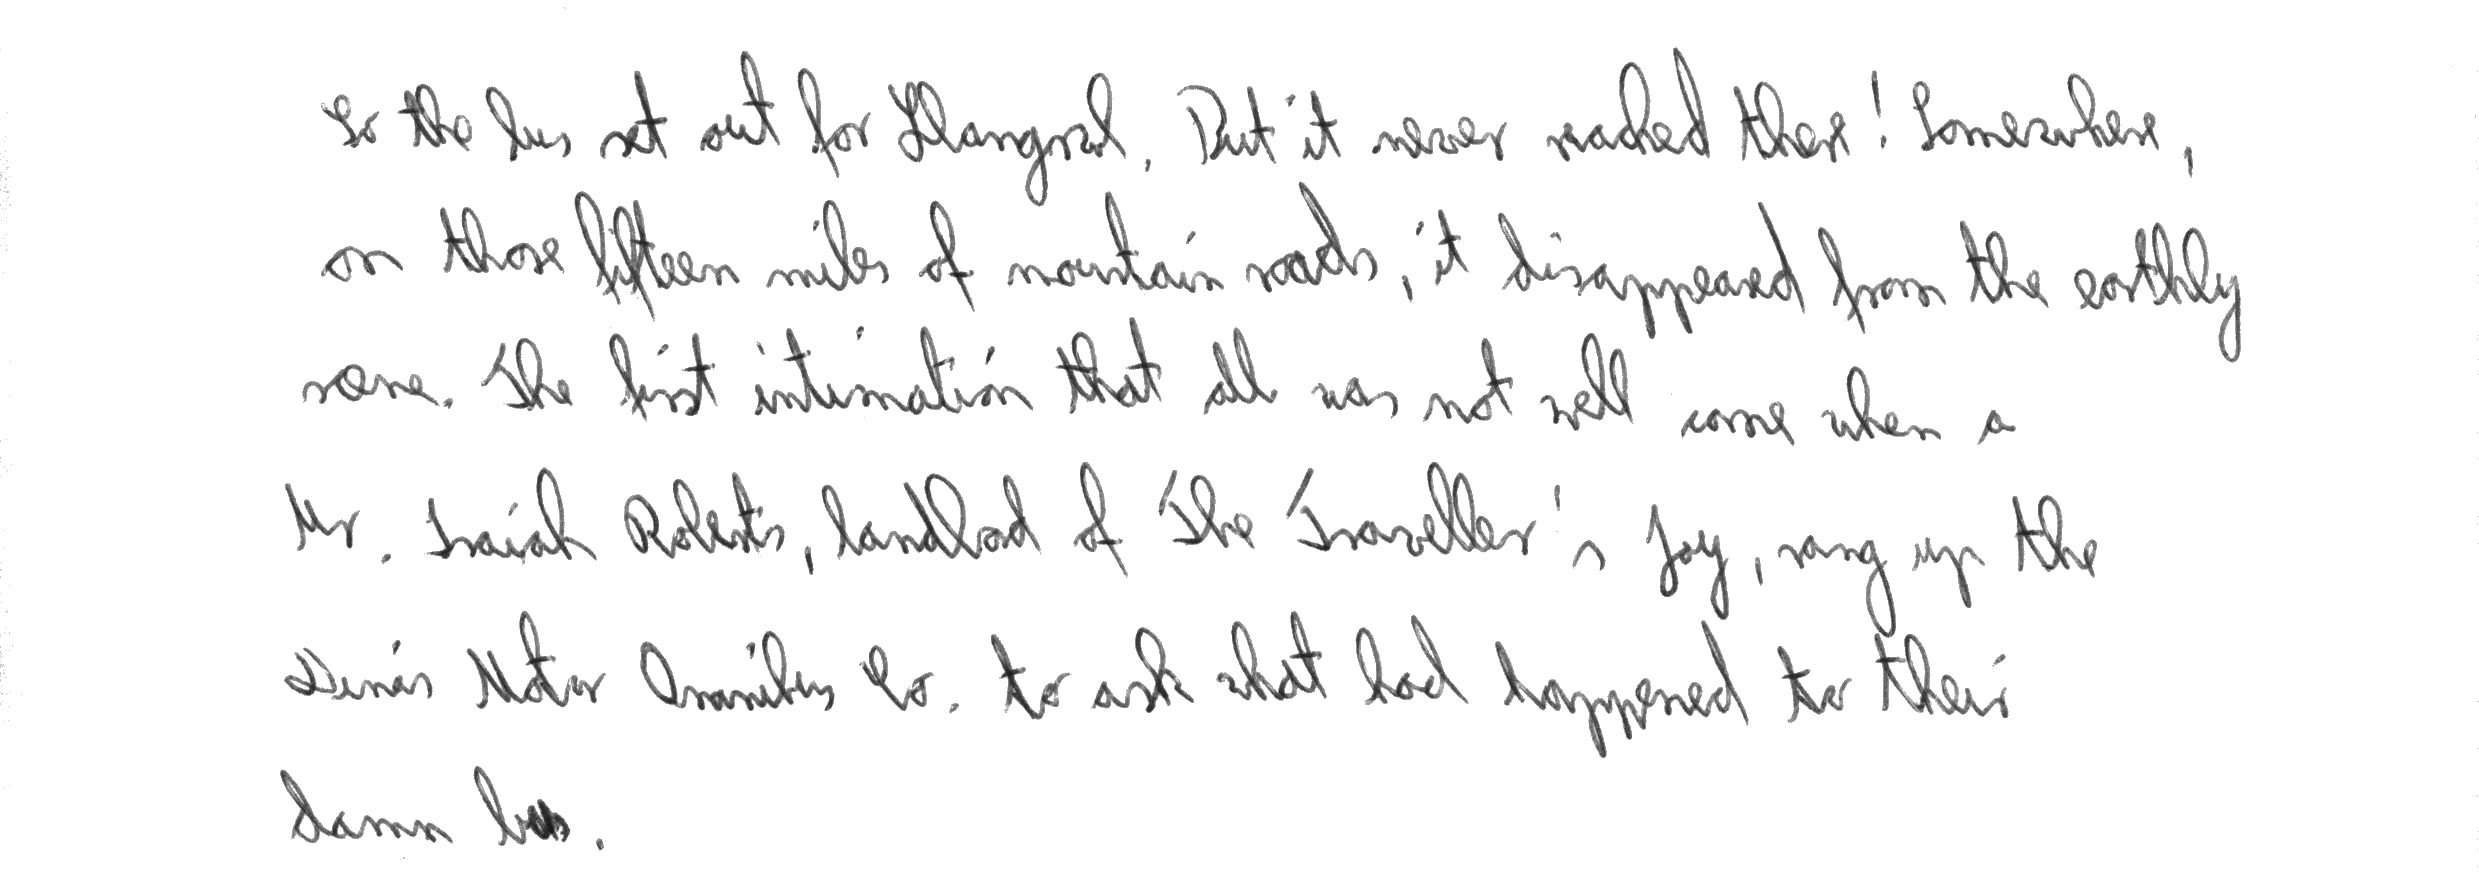 So the bus set out for Llangrod. But it never reached there! Somewhere,
on those fifteen miles of mountain roads, it disappeared from the earthly
scene. The first intimation that all was not well came when a
Mr. Isaiah Roberts, landlord of The Traveller's Joy, rang up the
Dinas Motor Omnibus Co. to ask what had happened to their
damn bus.